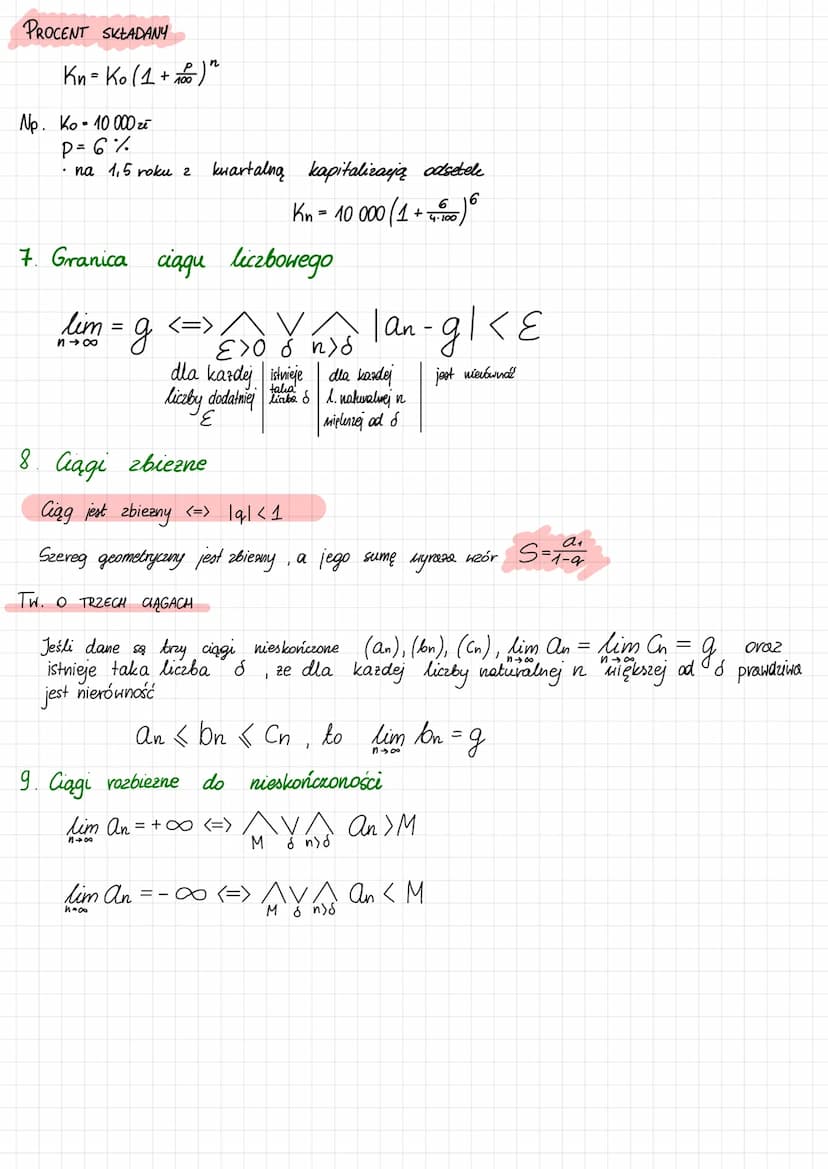 PROCENT SKŁADANY
Kn = Ko (1 + p/100)^n
Np. Ko = 10 000 zł
p = 6 %
· na 1,5 roku z kwartalną kapitalizacją odsetek
Kn = 10 000 (1 + 6/4·100)^6
7. Granica ciągu liczbowego
lim n→∞ = g <=> ⋀ ε>0 ⋁ δ ⋀ n>δ |an - g| < ε
dla każdej liczby dodatniej ε | istnieje taka liczba δ | dla każdej l. naturalnej n większej od δ | jest nierówność
8. Ciągi zbieżne
Ciąg jest zbieżny <=> |q| < 1
Szereg geometryczny jest zbieżny, a jego sumę wyraża wzór S = a1/1-q
TW. O TRZECH CIĄGACH
Jeśli dane są trzy ciągi nieskończone (an), (bn), (cn), lim n→∞ an = lim n→∞ Cn = g oraz
istnieje taka liczba δ, że dla każdej liczby naturalnej n większej od δ prawdziwa
jest nierówność
an ⩽ bn ⩽ Cn, to lim n→∞ bn = g
9. Ciągi rozbieżne do nieskończoności
lim n→∞ an = +∞ <=> ⋀ M ⋁ δ ⋀ n>δ an > M
lim n→∞ an = -∞ <=> ⋀ M ⋁ δ ⋀ n>δ an < M